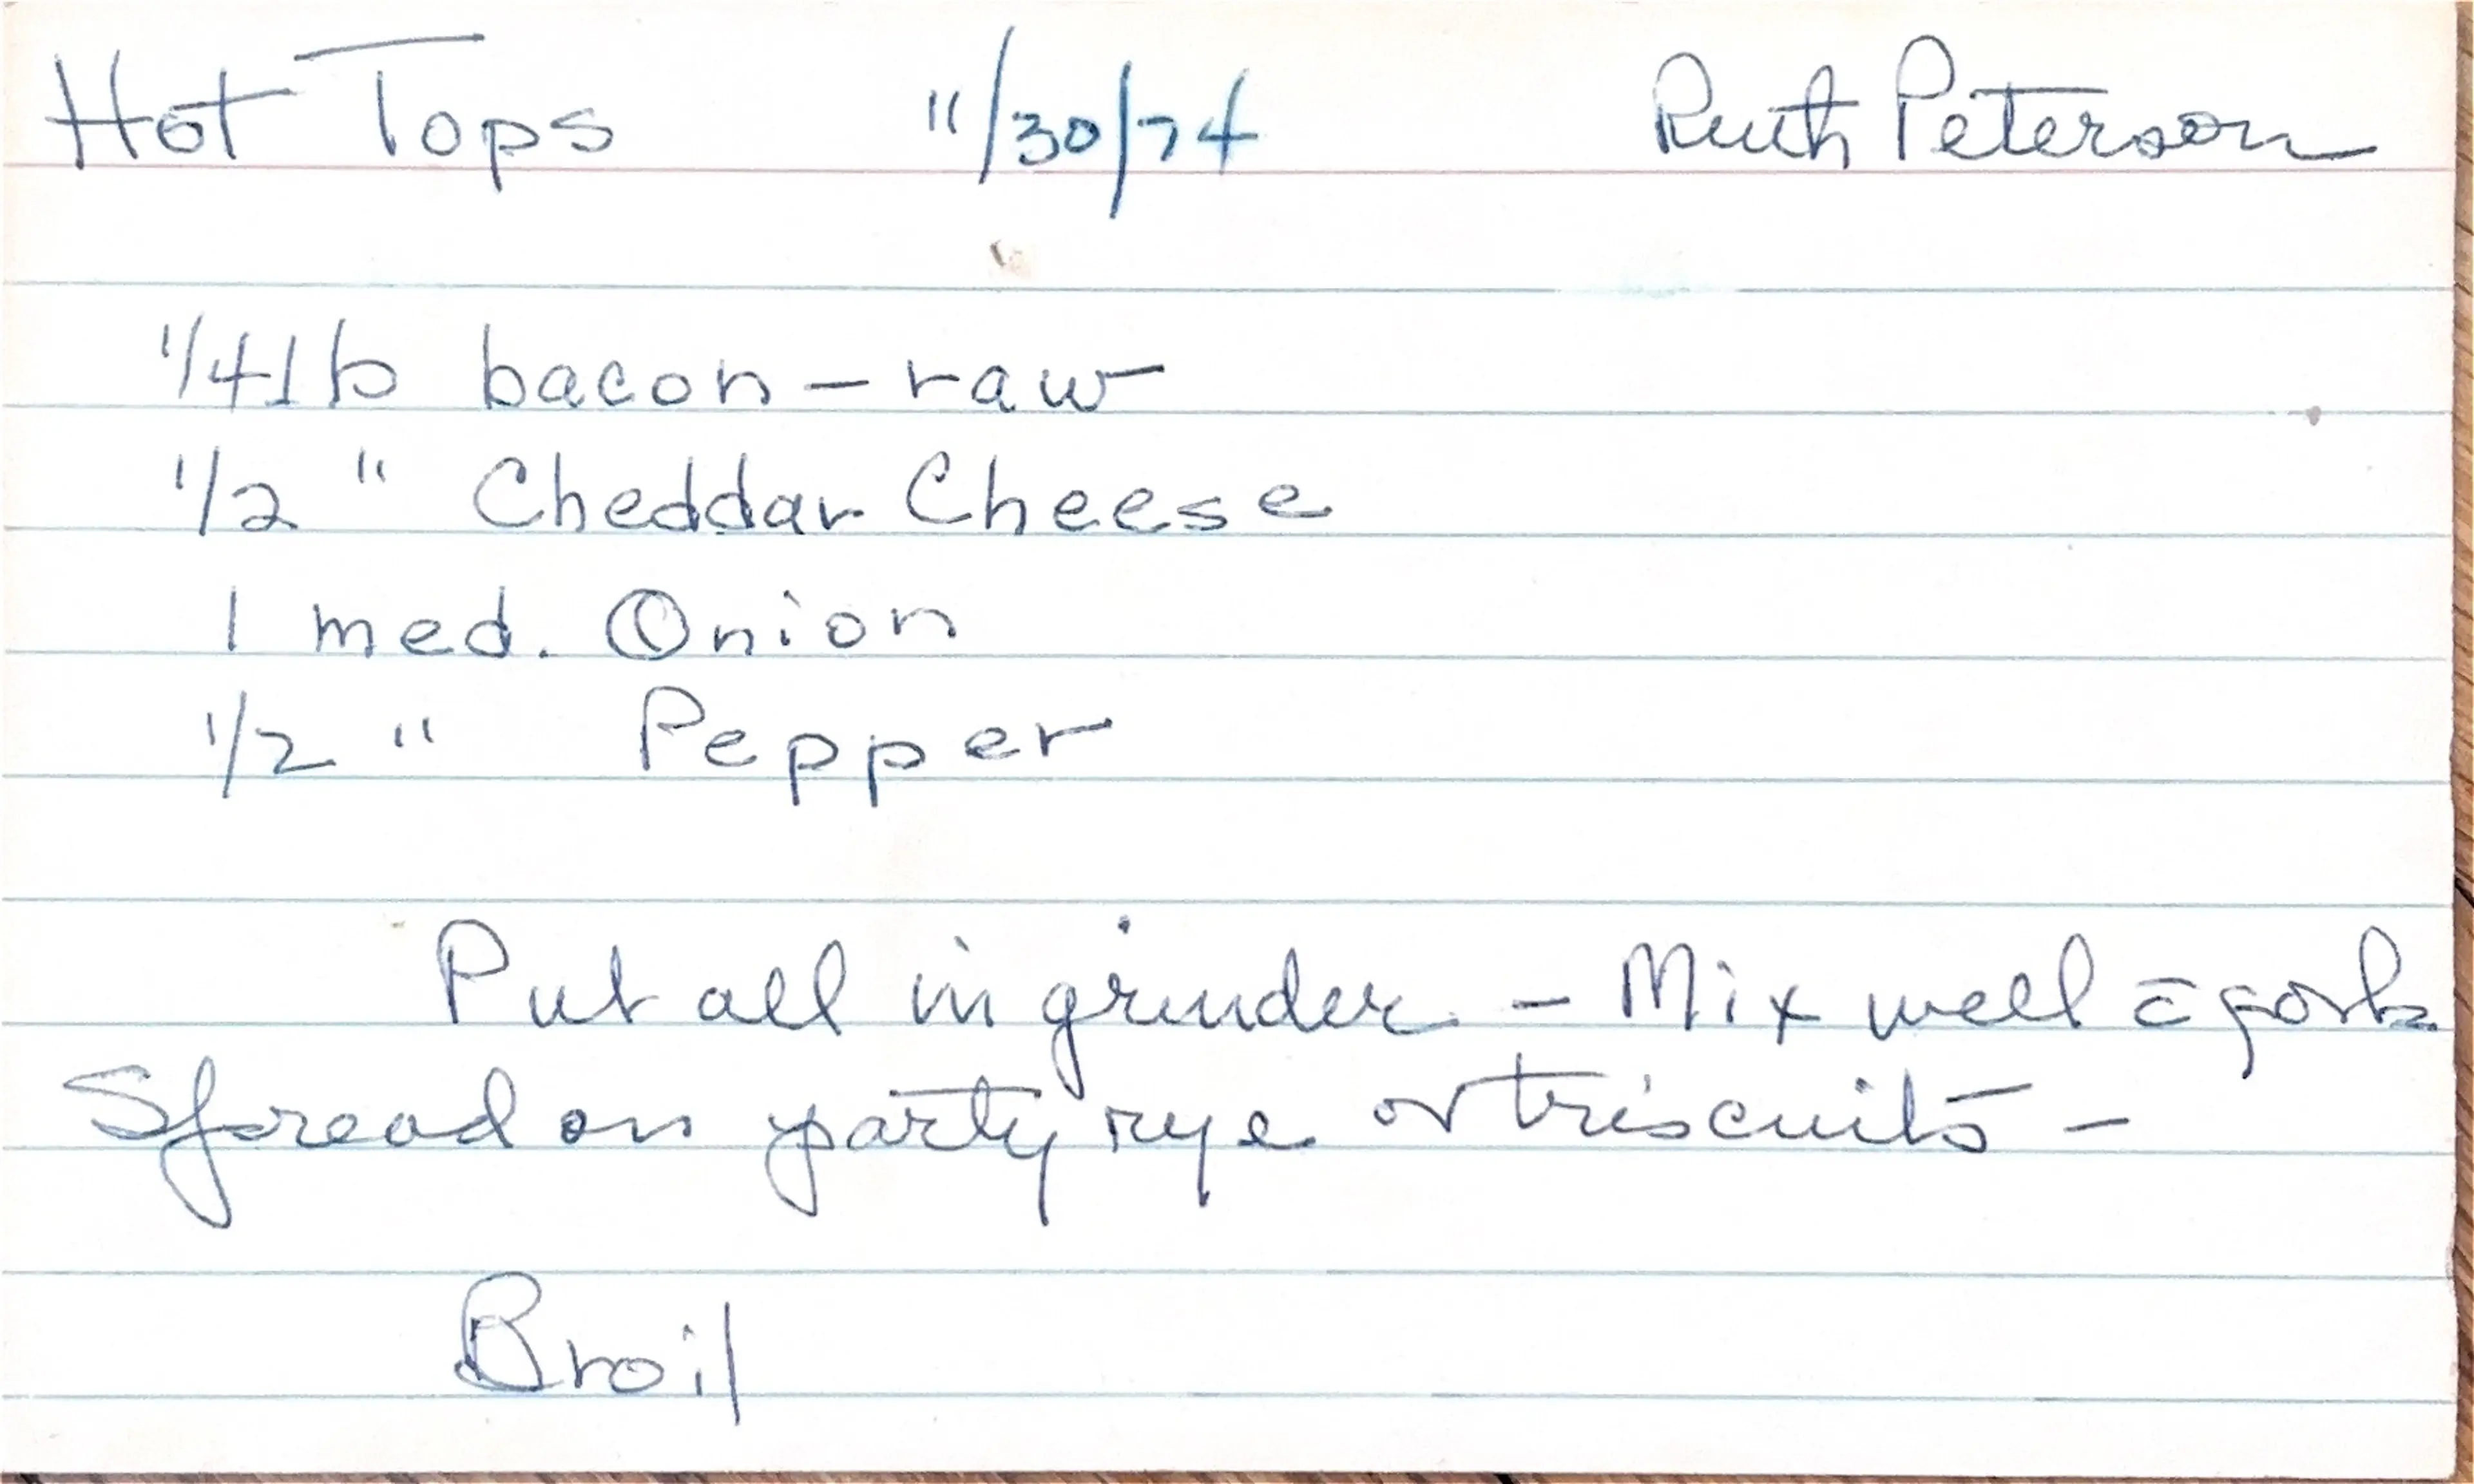 Hot Tops 11/30/74 Ruth Peterson
1/4 lb bacon – raw
1/2 " Cheddar Cheese
1 med. Onion
1/2 " Pepper
Put all in grinder – Mix well c̄ fork
Spread on party rye or triscuits –
Broil